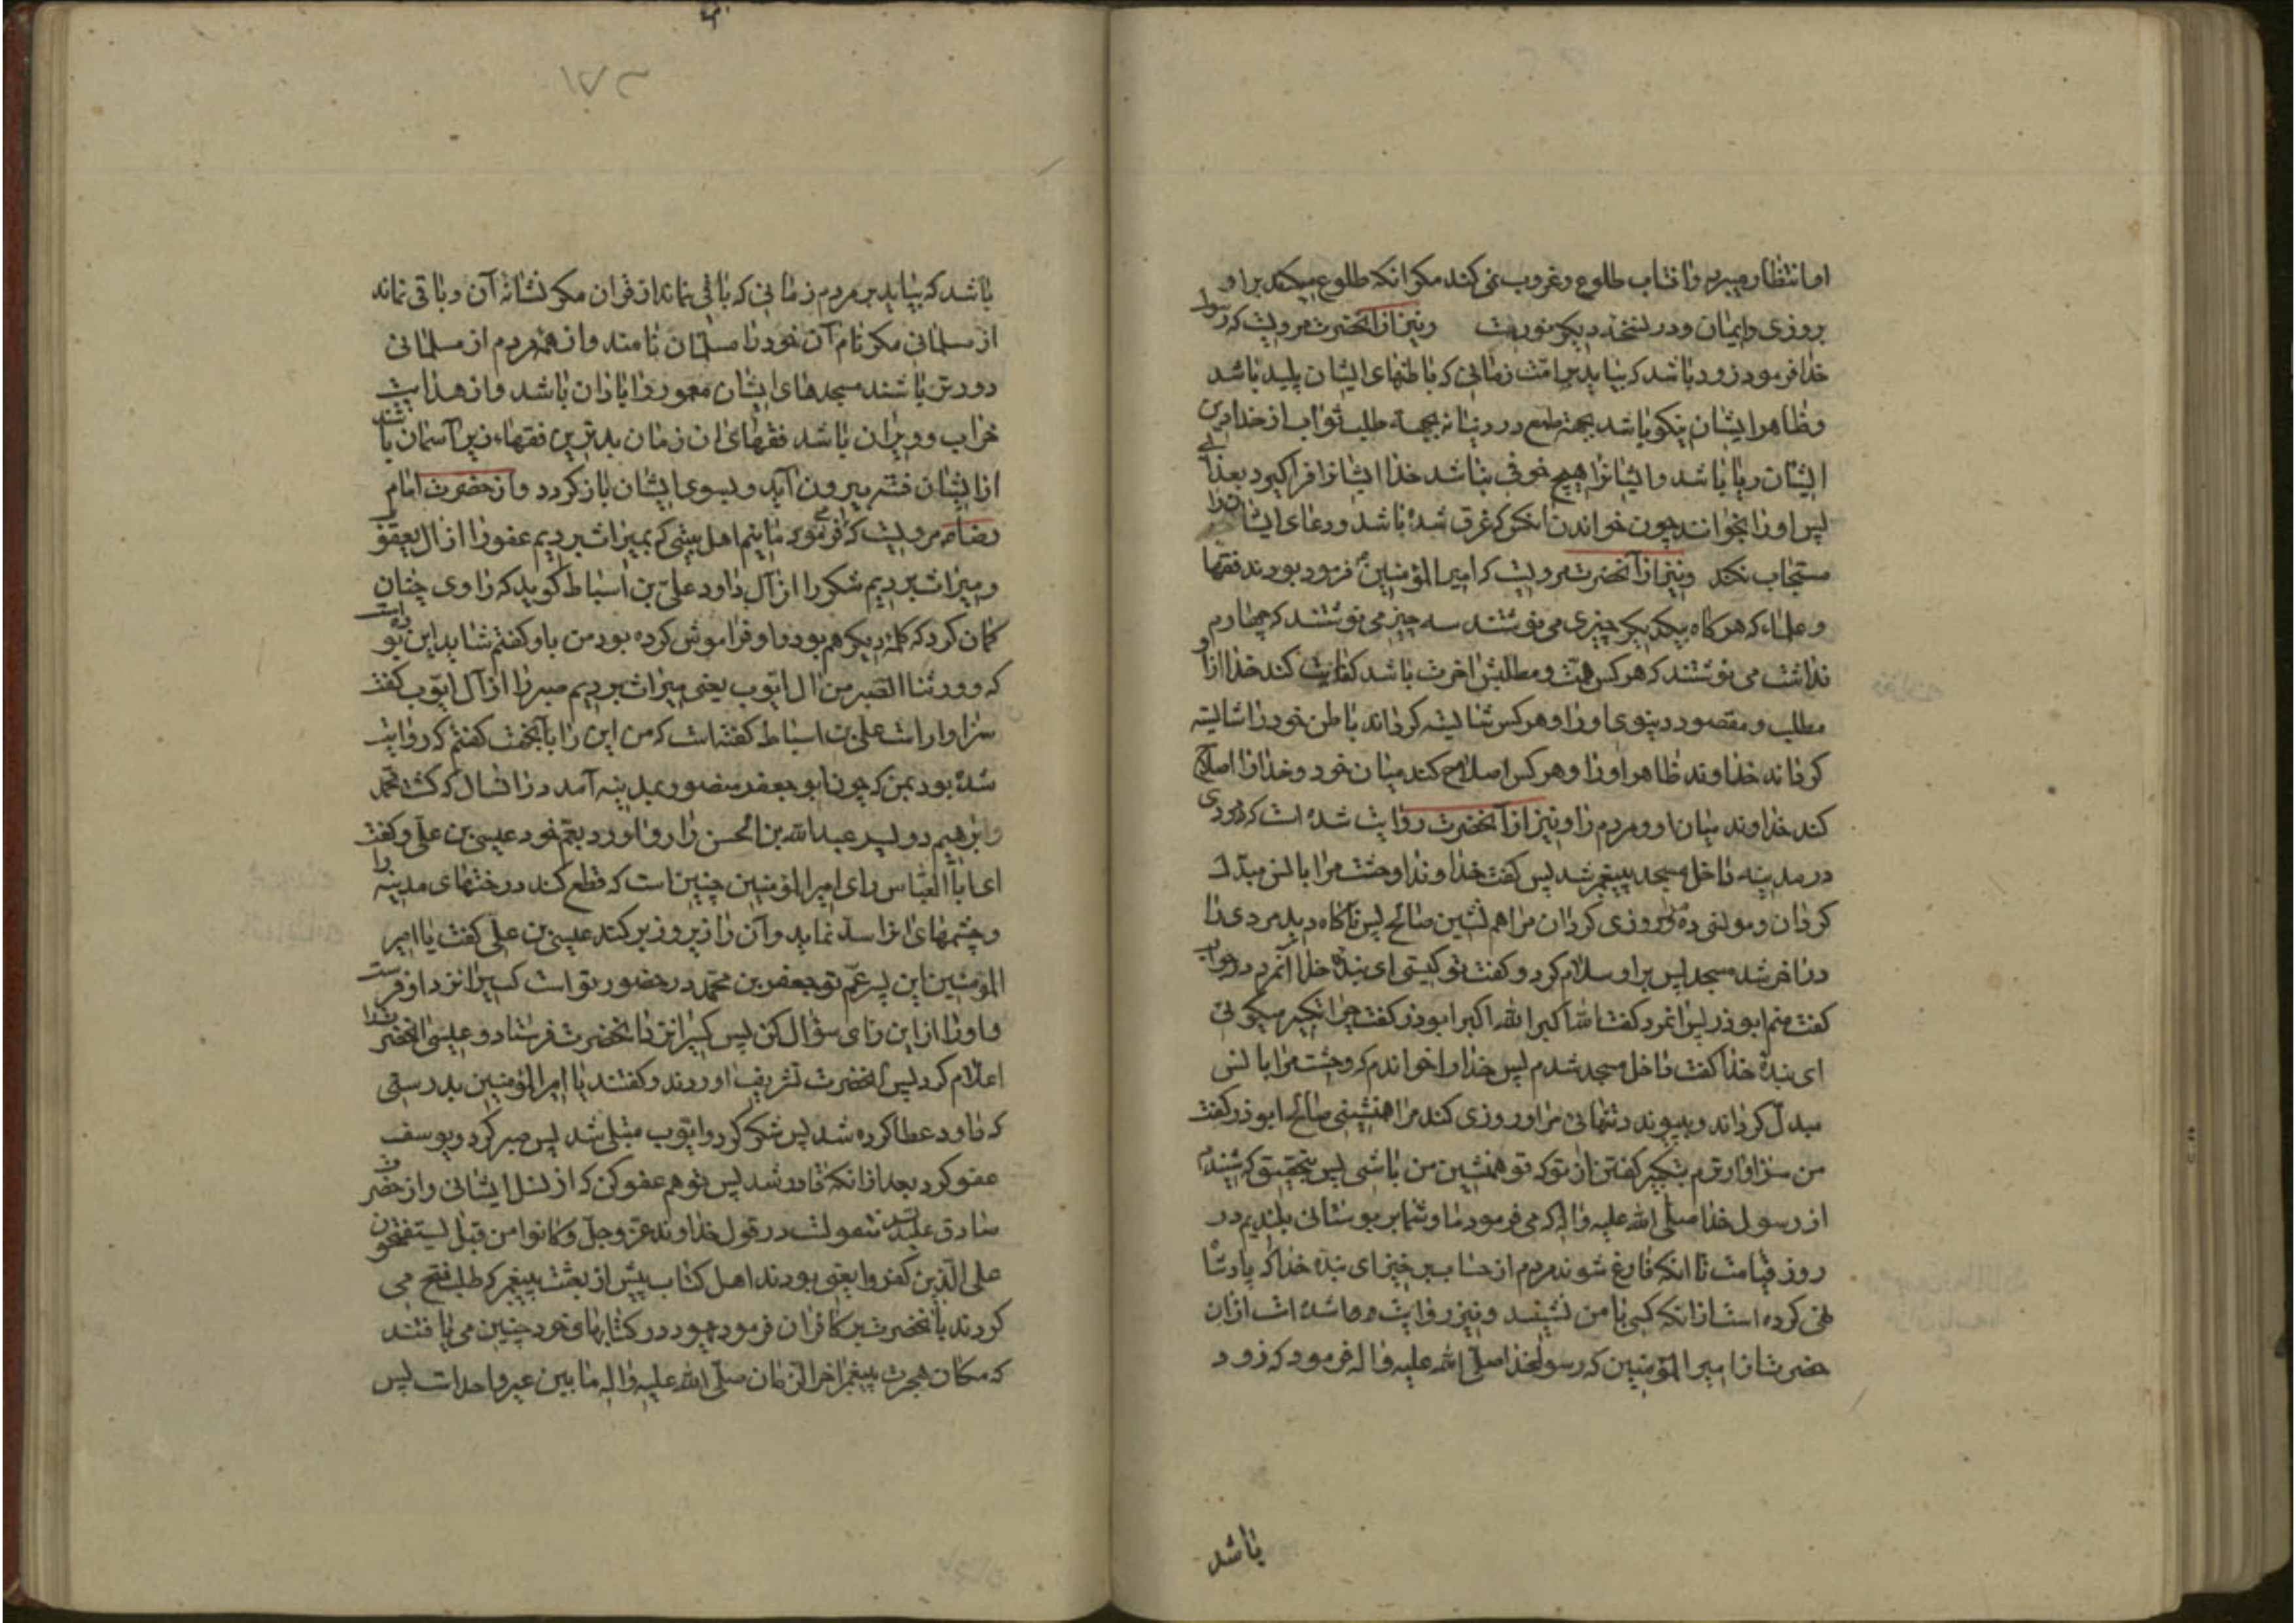 او انتظار میبرم و افتاب طلوع و غروب نمی کند مکر انکه طلوع میکند بر او
بروزی و ایمان و در نسخه دیکر نوریت و نیز از انحضرت مرویست که رسول
خدا فرمود زود باشد که بیاید بر امت زمانی که باطنهای ایشان پلید باشد
و ظاهر ایشان نیکو باشد بجهة طمع در دنیا نه بجهة طلب ثواب از خدا دین
ایشان ریا باشد و ایشانرا هیچ خوفی نباشد خدا ایشانرا فرا کیرد بعذابی
پس او را بخوانند چون خواندن انکس که غرق شده باشد و دعای ایشانرا
مستجاب نکند و نیز از آنحضرت مرویست که امیر المؤمنین فرمود بودند فقها
و علماء که هر کاه بیکدیکر چیزی می نوشتند سه چیز می نوشتند که چهارم
نداشت می نوشتند که هر کس همت و مطلبش اخرت باشد کفایت کند خدا از او
مطلب و مقصود دنیوی او را و هر کس شایسته کرداند باطن خود را شایسته
کرداند خداوند ظاهر او را و هر کس اصلاح کند میان خود و خدا را اصلاح
کند خداوند میان او و مردم را و نیز از آنحضرت روایت شده است که مردی
در مدینه داخل مسجد پیغمبر شد پس کفت خداوندا وحشت مرا با انس مبدل
کردان و مونسی ده مرا و روزی کردان مرا همنشین صالح پس ناکاه دید مردی را
در اخر مسجد پس بر او سلام کرد و کفت تو کیستی ای بنده خدا آنمرد در جواب
کفت منم ابو ذر پس انمرد کفت الله اکبر الله اکبر ابو ذر کفت چرا تکبیر میکوئی
ای بندۀ خدا کفت داخل مسجد شدم پس خدا را خواندم که وحشت مرا با انس
مبدل کرداند و پیوندد تنهائی مرا و روزی کند مرا همنشینی صالح ابو ذر کفت
من سزاوارترم بتکبیر کفتن از تو که تو همنشین من باشی پس بتحقیق که شنیدم
از رسول خدا صلی الله علیه و اله که می فرمود ما و شما بر بوستانی بلندیم در
روز قیامت تا انکه فارغ شوند مردم از حساب برخیز ای بنده خدا که پادشاه
نهی کرده است از انکه کسی با من نشیند و نیز روایت شده است از ان
حضرت از امیر المؤمنین که رسولخدا صلی الله علیه و اله فرمود که زود
باشد
۱۷۳
باشد که بیاید بر مردم زمانی که باقی نماند از قران مکر نشانۀ آن و باقی نماند
از مسلمانی مکر نام آن خود را مسلمان نامند و از همه مردم از مسلمانی
دورتر باشند مسجدهای ایشان معمور و ابادان باشد و از هدایت
خراب و ویران باشد فقهای ان زمان بدترین فقهاء زیر آسمان باشند
از ایشان فتنه بیرون آید و بسوی ایشان باز کردد و از حضرت امام
رضا مرویست که فرمود مائیم اهل بیتی که بمیراث بردیم عفو را از ال یعقوب
و میراث بردیم شکر را از آل داود علی بن اسباط کوید که راوی چنان
کمان کرد که کلمۀ دیکر هم بود و او فراموش کرده بود من باو کفتم شاید این بوده است
که و ورثنا الصبر من ال ایوب یعنی میراث بردیم صبر را از آل ایوب کفت
سزاوار است علی بن اسباط کفته است که من این را بآنجهت کفتم که روایت
شده بود بمن که چون ابو جعفر منصور بمدینه آمد در انسال که کشت محمد
و ابرهیم دو پسر عبد الله بن الحسن را رو آورد بعم خود عیسی بن علی و کفت
ای ابا العباس رای امیر المؤمنین چنین است که قطع کند درختهای مدینه را
و چشمهای انرا سد نماید و آن را زیر و زبر کند عیسی بن علی کفت یا امیر
المؤمنین این پسر عم تو جعفر بن محمد در حضور تو است کسیرا نزد او فرست
و او را از این رای سؤال کن پس کسیرا نزد انحضرت فرستاد و عیسی انحضرترا
اعلام کرد پس انحضرت تشریف اوردند و کفتند یا امیر المؤمنین بدرستی
که داود عطا کرده شد پس شکر کرد و ایوب مبتلی شد پس صبر کرد و یوسف
عفو کرد بعد از انکه قادر شد پس تو هم عفو کن که از نسل ایشانی و از حضرت
صادق علیه منقولست در قول خداوند عز و جل و کانوا من قبل یستفتحون
علی الذین کفروا یعنی بودند اهل کتاب پیش از بعثت پیغمبر که طلب فتح می
کردند بآنحضرت بر کافران فرمود یهود در کتابهای خود چنین می یافتند
که مکان هجرت پیغمبر اخر الزمان صلی الله علیه و اله ما بین عیر و احد است پس